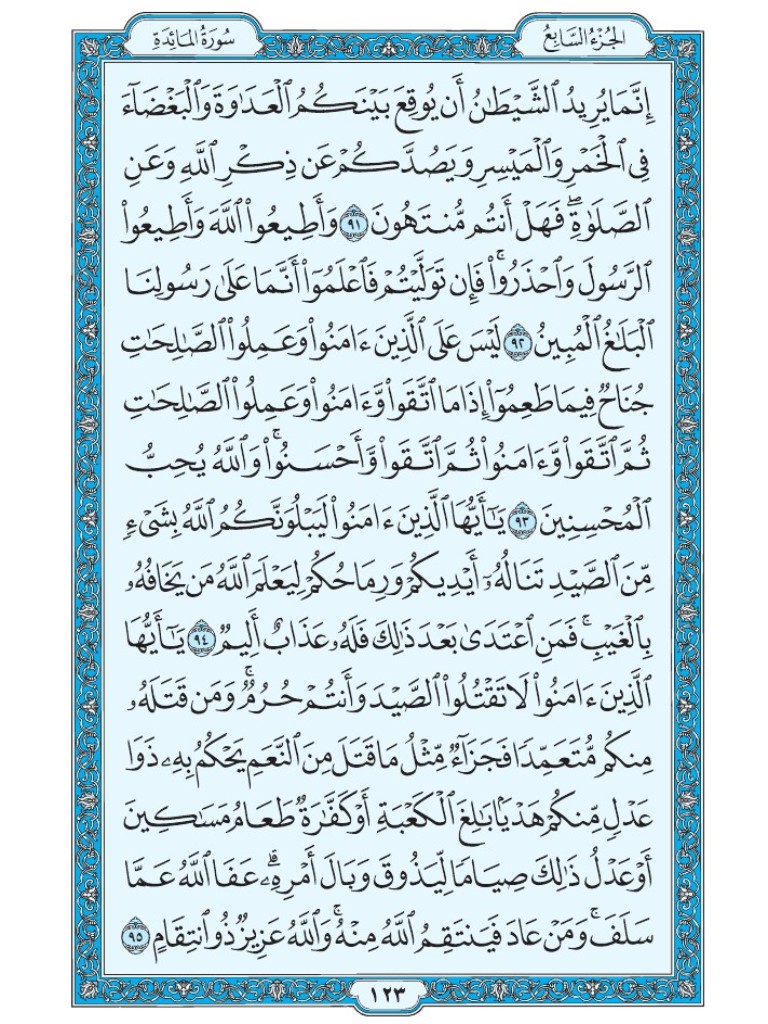 الجُزْءُ السَّابِعُ
سُورَةُ المَائِدَةِ
إِنَّمَا يُرِيدُ ٱلشَّيْطَٰنُ أَن يُوقِعَ بَيْنَكُمُ ٱلْعَدَٰوَةَ وَٱلْبَغْضَآءَ
فِى ٱلْخَمْرِ وَٱلْمَيْسِرِ وَيَصُدَّكُمْ عَن ذِكْرِ ٱللَّهِ وَعَنِ
ٱلصَّلَوٰةِۖ فَهَلْ أَنتُم مُّنتَهُونَ ٩١ وَأَطِيعُوا۟ ٱللَّهَ وَأَطِيعُوا۟
ٱلرَّسُولَ وَٱحْذَرُوا۟ۚ فَإِن تَوَلَّيْتُمْ فَٱعْلَمُوٓا۟ أَنَّمَا عَلَىٰ رَسُولِنَا
ٱلْبَلَٰغُ ٱلْمُبِينُ ٩٢ لَيْسَ عَلَى ٱلَّذِينَ ءَامَنُوا۟ وَعَمِلُوا۟ ٱلصَّٰلِحَٰتِ
جُنَاحٌ فِيمَا طَعِمُوٓا۟ إِذَا مَا ٱتَّقَوا۟ وَّءَامَنُوا۟ وَعَمِلُوا۟ ٱلصَّٰلِحَٰتِ
ثُمَّ ٱتَّقَوا۟ وَّءَامَنُوا۟ ثُمَّ ٱتَّقَوا۟ وَّأَحْسَنُوا۟ۗ وَٱللَّهُ يُحِبُّ
ٱلْمُحْسِنِينَ ٩٣ يَٰٓأَيُّهَا ٱلَّذِينَ ءَامَنُوا۟ لَيَبْلُوَنَّكُمُ ٱللَّهُ بِشَىْءٍ
مِّنَ ٱلصَّيْدِ تَنَالُهُۥٓ أَيْدِيكُمْ وَرِمَاحُكُمْ لِيَعْلَمَ ٱللَّهُ مَن يَخَافُهُۥ
بِٱلْغَيْبِۚ فَمَنِ ٱعْتَدَىٰ بَعْدَ ذَٰلِكَ فَلَهُۥ عَذَابٌ أَلِيمٌ ٩٤ يَٰٓأَيُّهَا
ٱلَّذِينَ ءَامَنُوا۟ لَا تَقْتُلُوا۟ ٱلصَّيْدَ وَأَنتُمْ حُرُمٌۚ وَمَن قَتَلَهُۥ
مِنكُم مُّتَعَمِّدًا فَجَزَآءٌ مِّثْلُ مَا قَتَلَ مِنَ ٱلنَّعَمِ يَحْكُمُ بِهِۦ ذَوَا
عَدْلٍ مِّنكُمْ هَدْيًۢا بَٰلِغَ ٱلْكَعْبَةِ أَوْ كَفَّٰرَةٌ طَعَامُ مَسَٰكِينَ
أَوْ عَدْلُ ذَٰلِكَ صِيَامًا لِّيَذُوقَ وَبَالَ أَمْرِهِۦۗ عَفَا ٱللَّهُ عَمَّا
سَلَفَۚ وَمَنْ عَادَ فَيَنتَقِمُ ٱللَّهُ مِنْهُۗ وَٱللَّهُ عَزِيزٌ ذُو ٱنتِقَامٍ ٩٥
١٢٣